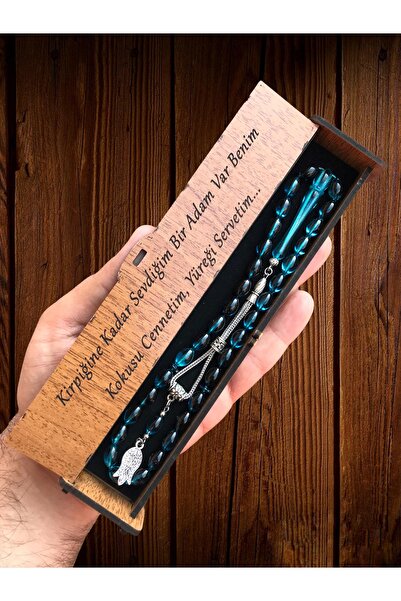 Kirpiğine Kadar Sevdiğim Bir Adam Var Benim
Kokusu Cennetim, Yüreği Servetim...